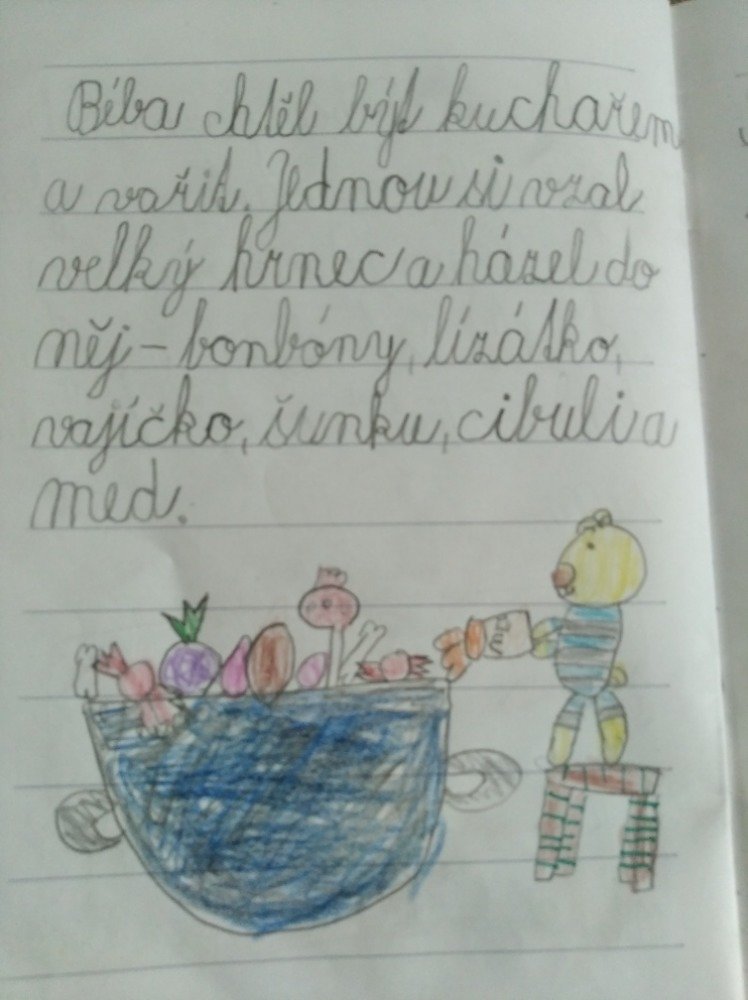 Béba chtěl být kuchařem
a vařit. Jednou si vzal
velký hrnec a házel do
něj - bonbóny, lízátko,
vajíčko, šunku, cibuli a
med.